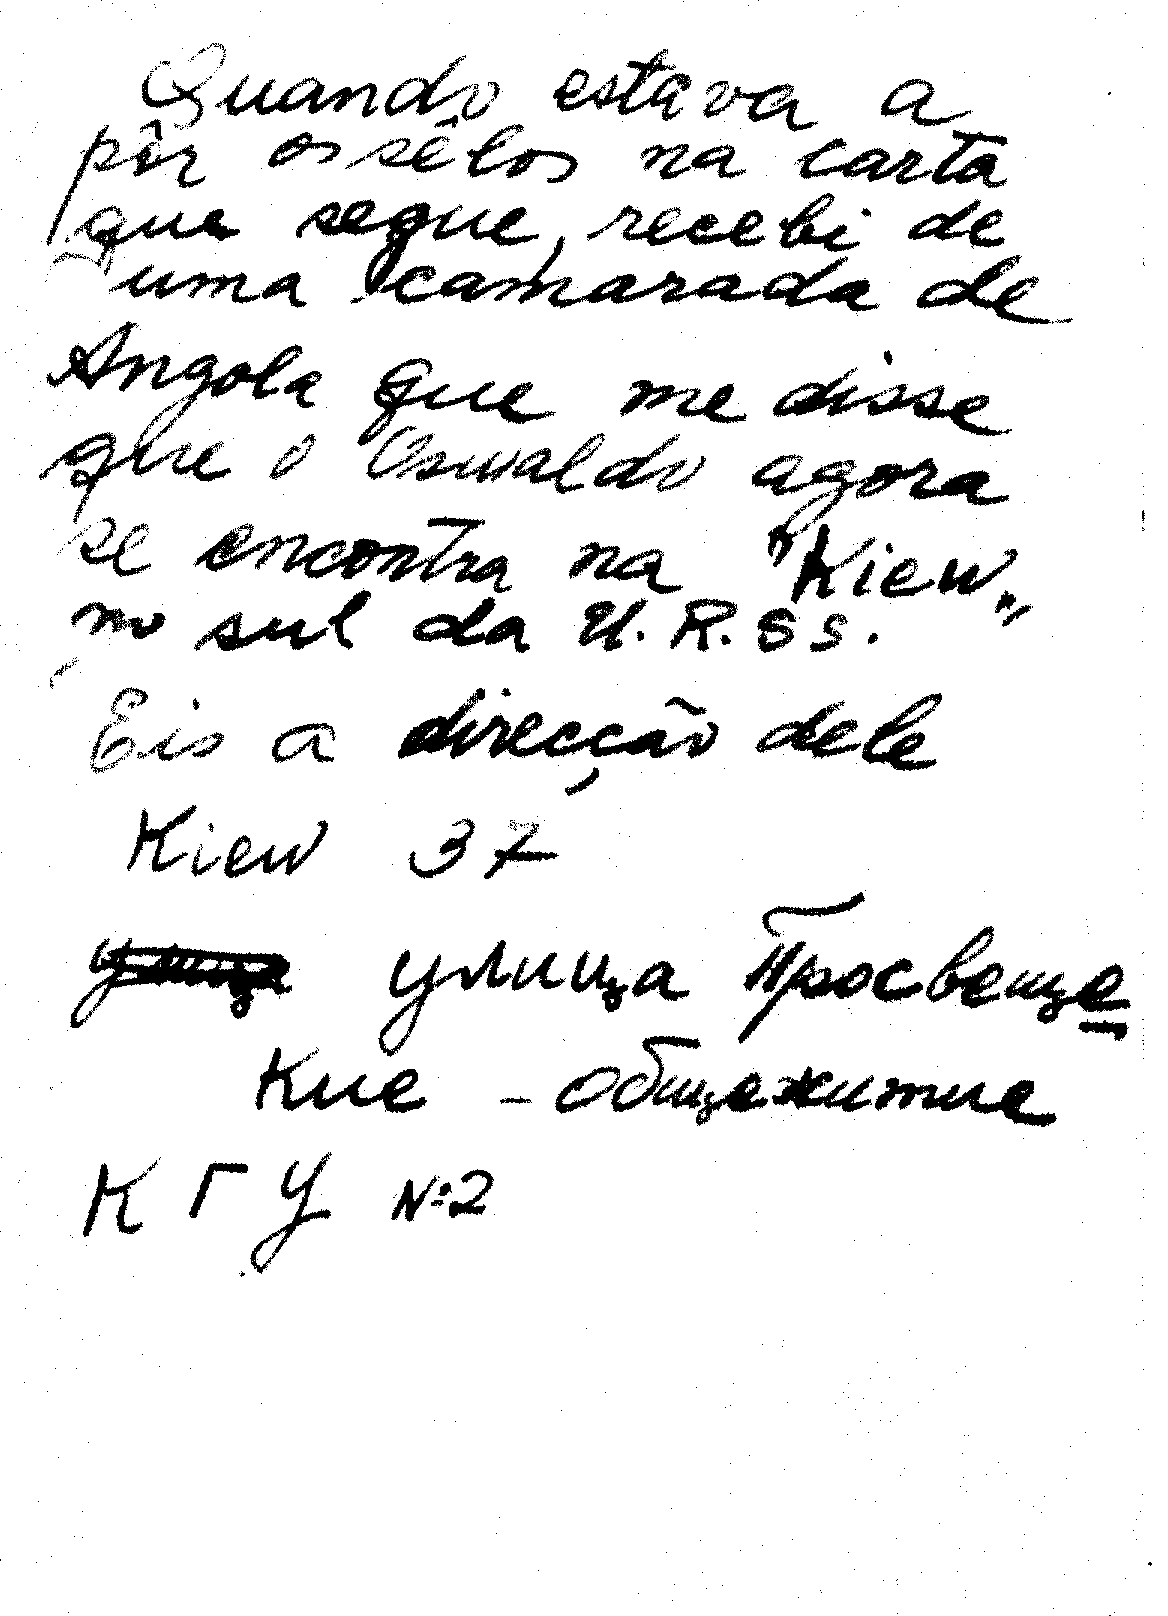 Quando estava a
pôr os sêlos na carta
que segue, recebi de
uma camarada de
Angola que me disse
que o Oswaldo agora
se encontra na "Kiew"
no sul da U.R.SS.
Eis a direcção dele
Kiew 37
улица Просвеще
ние - общежитие
КГУ №2